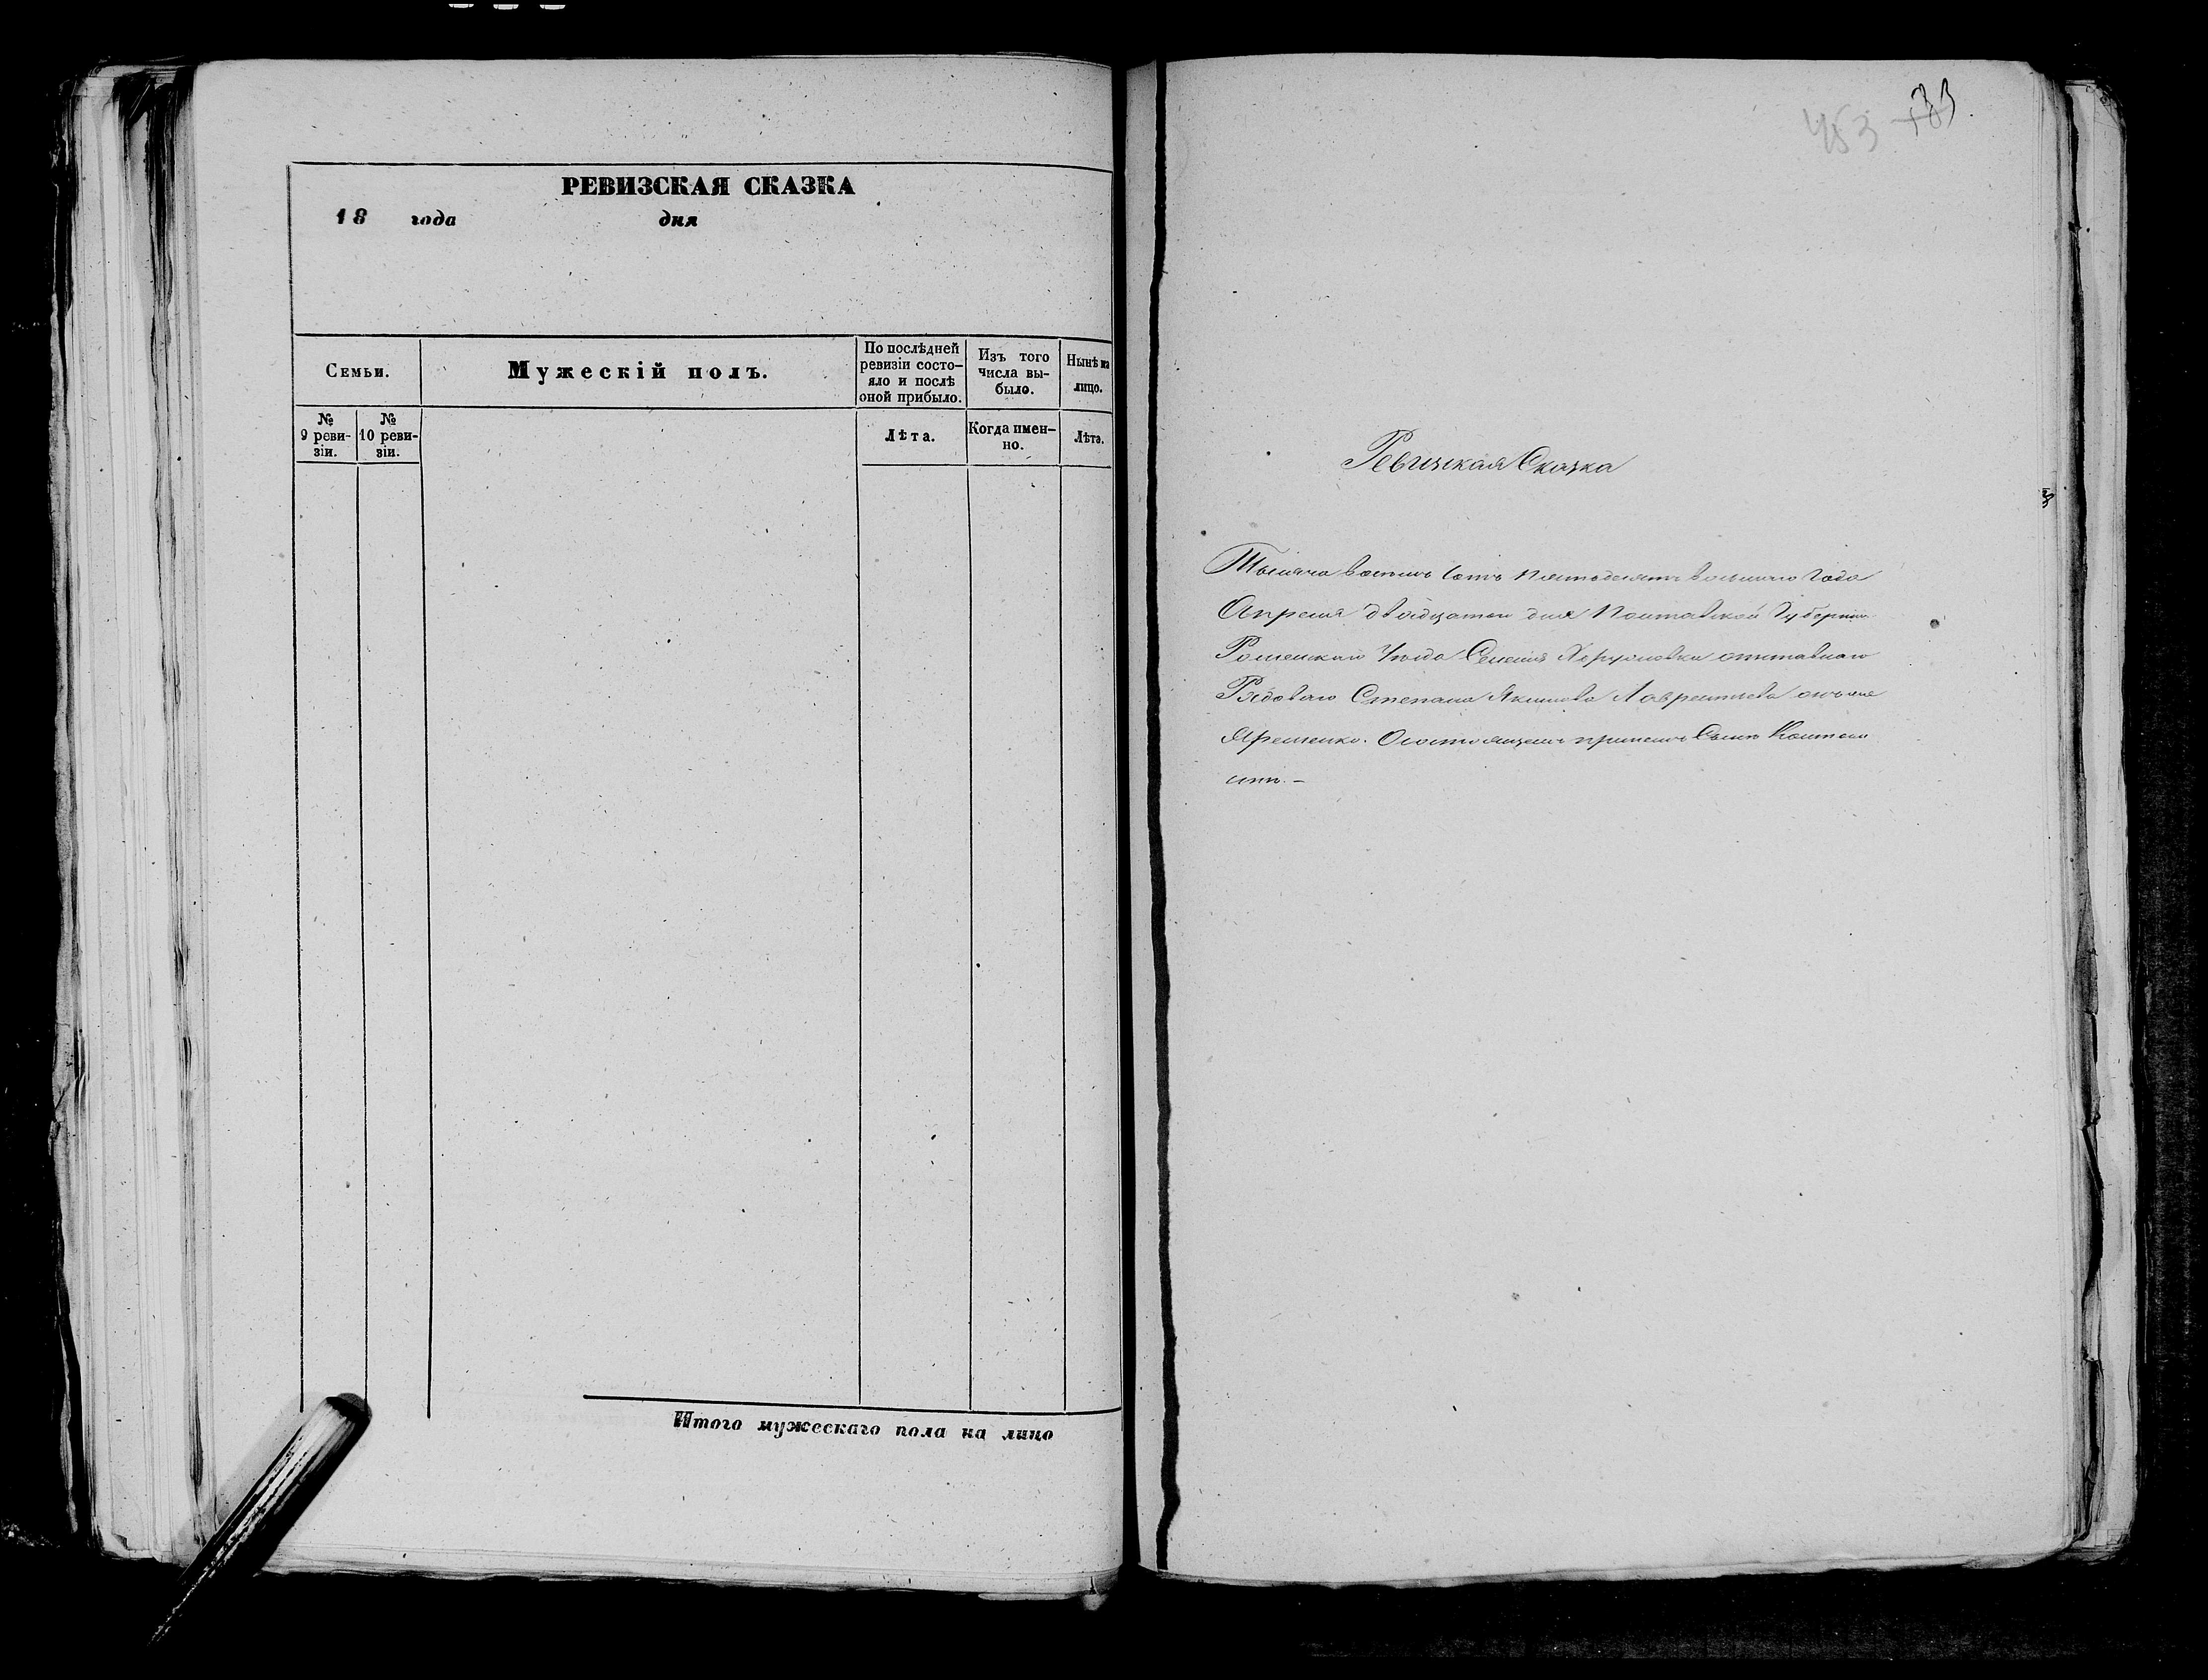 РЕВИЗСКАЯ СКАЗКА
18 года дня
Семьи.
Мужескій полъ.
По послѣдней
ревизіи состо-
яло и послѣ
оной прибыло.
Изъ того
числа вы-
было.
Нынѣ на
лицо.
№
9 реви-
зіи.
№
10 реви-
зіи.
Лѣта.
Когда имен-
но.
Лѣта.
Итого мужескаго пола на лицо
453
Ревизская Сказка
Тысяча восемь сотъ пятьдесятъ восьмаго Года
Апреля двадцатаго дня Полтавской Губерніи
Роменскаго Уезда Селенія отставнаго
Рядоваго Степана Якимова Лаврентьева онъ же
Яременко. О состоящемъ при немъ Сыне